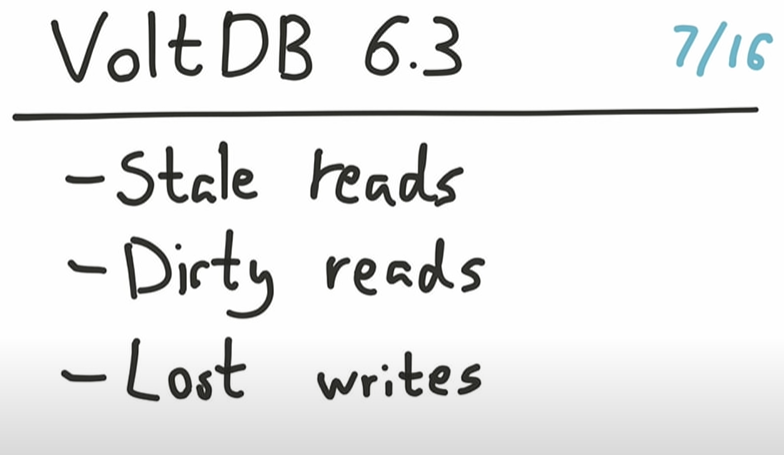 VoltDB 6.3 7/16
- Stale reads
- Dirty reads
- Lost writes